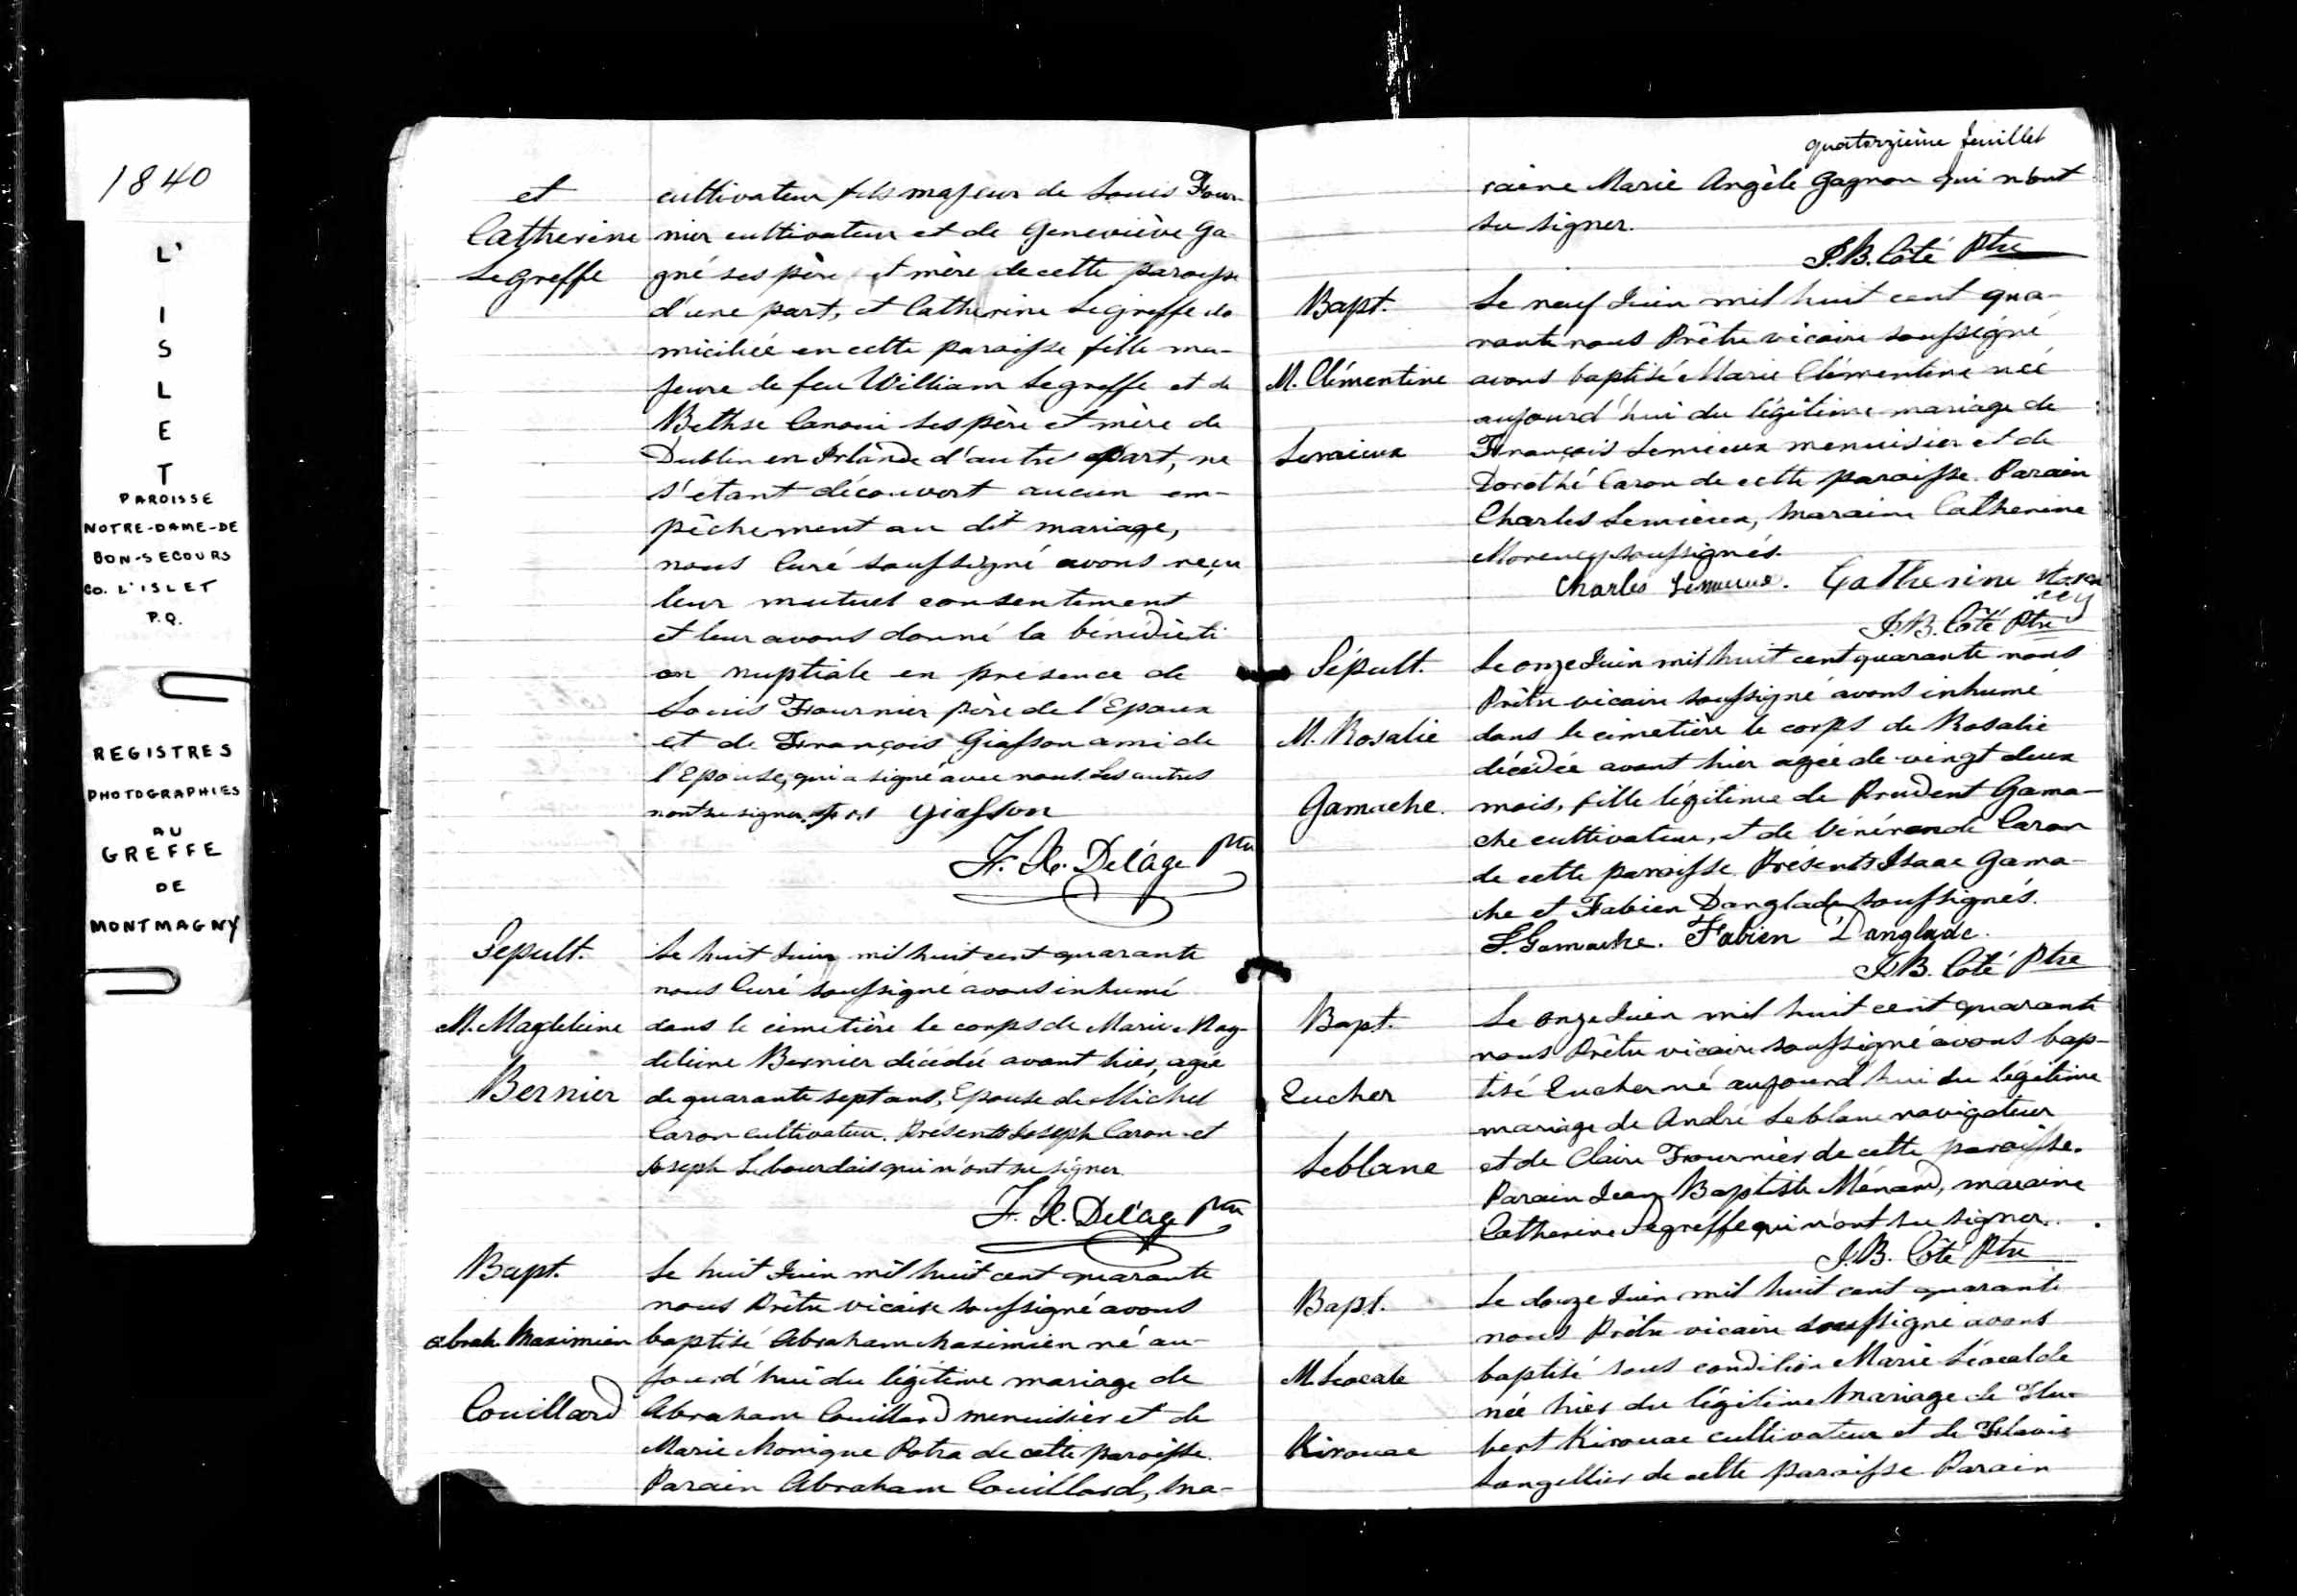 1840
L'
I
S
L
E
T
PAROISSE
NOTRE-DAME-DE
BON-SECOURS
CO. L'ISLET
P.Q.
REGISTRES
PHOTOGRAPHIES
AU
GREFFE
DE
MONTMAGNY
et
Catherine
Legreffe
cultivateur fils majeur de Louis Four-
nier cultivateur et de Geneviève Ga-
gné ses père et mère de cette paroisse
d'une part, et Catherine Legreffe do
miciliée en cette paroisse fille ma-
jeure de feu William Legreffe et de
Bethse Canoui ses père et mère de
Dublin en Irlande d'autre part, ne
s'etant découvert aucun em-
pêchement au dit mariage,
nous Curé soussigné avons reçu
leur mutuel consentement
et leur avons donné la bénédicti
on nuptiale en présence de
Louis Fournier père de l'Epoux
et de François Giasson ami de
l'Epouse, qui a signé avec nous. Les autres
n'ont su signer. Frs Giasson
F. X. Delâge Ptre
Sepult.
M. Magdeleine
Bernier
Le huit Juin mil huit cent quarante
nous Curé soussigné avons inhumé
dans le cimetière le corps de Marie Mag-
deleine Bernier décédée avant hier, agée
de quarante sept ans, Epouse de Michel
Caron cultivateur. Présents Joseph Caron et
Joseph Lebourdais qui n'ont su signer
F. X. Delâge Ptre
Bapt.
Abrah. Maximien
Couillard
Le huit Juin mil huit cent quarante
nous Prêtre vicaire soussigné avons
baptisé Abraham Maximien né au-
jourd'hui du légitime mariage de
Abraham Couillard menuisier et de
Marie Monique Potra de cette paroisse.
Parain Abraham Couillard, ma-
quatorzième feuillet
raine Marie Angèle Gagnon qui n'ont
su signer.
J.B. Côté Ptre
Bapt.
M. Clémentine
Lemieux
Le neuf Juin mil huit cent qua-
rante nous Prêtre vicaire soussigné
avons baptisé Marie Clémentine née
aujourd'hui du légitime mariage de
François Lemieux menuisier et de
Dorothé Caron de cette paroisse. Parain
Charles Lemieux, maraine Catherine
Morency soussignés.
Charles Lemieux. Catherine Moren
cy
J.B. Côté Ptre
Sépult.
M. Rosalie
Gamache.
Le onze Juin mil huit cent quarante nous
Prêtre vicaire soussigné avons inhumé
dans le cimetière le corps de Rosalie
décédée avant hier agée de vingt deux
mois, fille légitime de Prudent Gama-
che cultivateur, et de Vénérande Caron
de cette paroisse. Présents Isaac Gama-
che et Fabien Danglade soussignés.
I. Gamache. Fabien Danglade.
J.B. Côté Ptre
Bapt.
Eucher
Leblanc
Le onze Juin mil huit cent quarante
nous Prêtre vicaire soussigné avons bap-
tisé Eucher né aujourd'hui du légitime
mariage de André Leblanc navigateur
et de Claire Fournier de cette paroisse.
Parain Jean Baptiste Ménard, maraine
Catherine Legreffe qui n'ont su signer.
J.B. Côté Ptre
Bapt.
M. Léocade
Kirouac
Le douze Juin mil huit cent quarante
nous Prêtre vicaire soussigné avons
baptisé sous condition Marie Léocalde
née hier du légitime Mariage de Hu-
bert Kirouac cultivateur et de Flavie
Langellier de cette paroisse. Parain